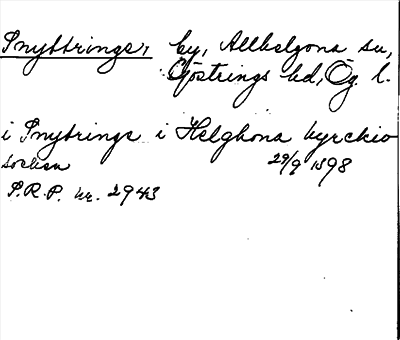 Snyttrings, by, Allhelgona sn,
Göstrings hd, Ög. l.
i Snytrings i Helghona kyrckio
sochen 29/9 1398
S.R.P. nr. 2943